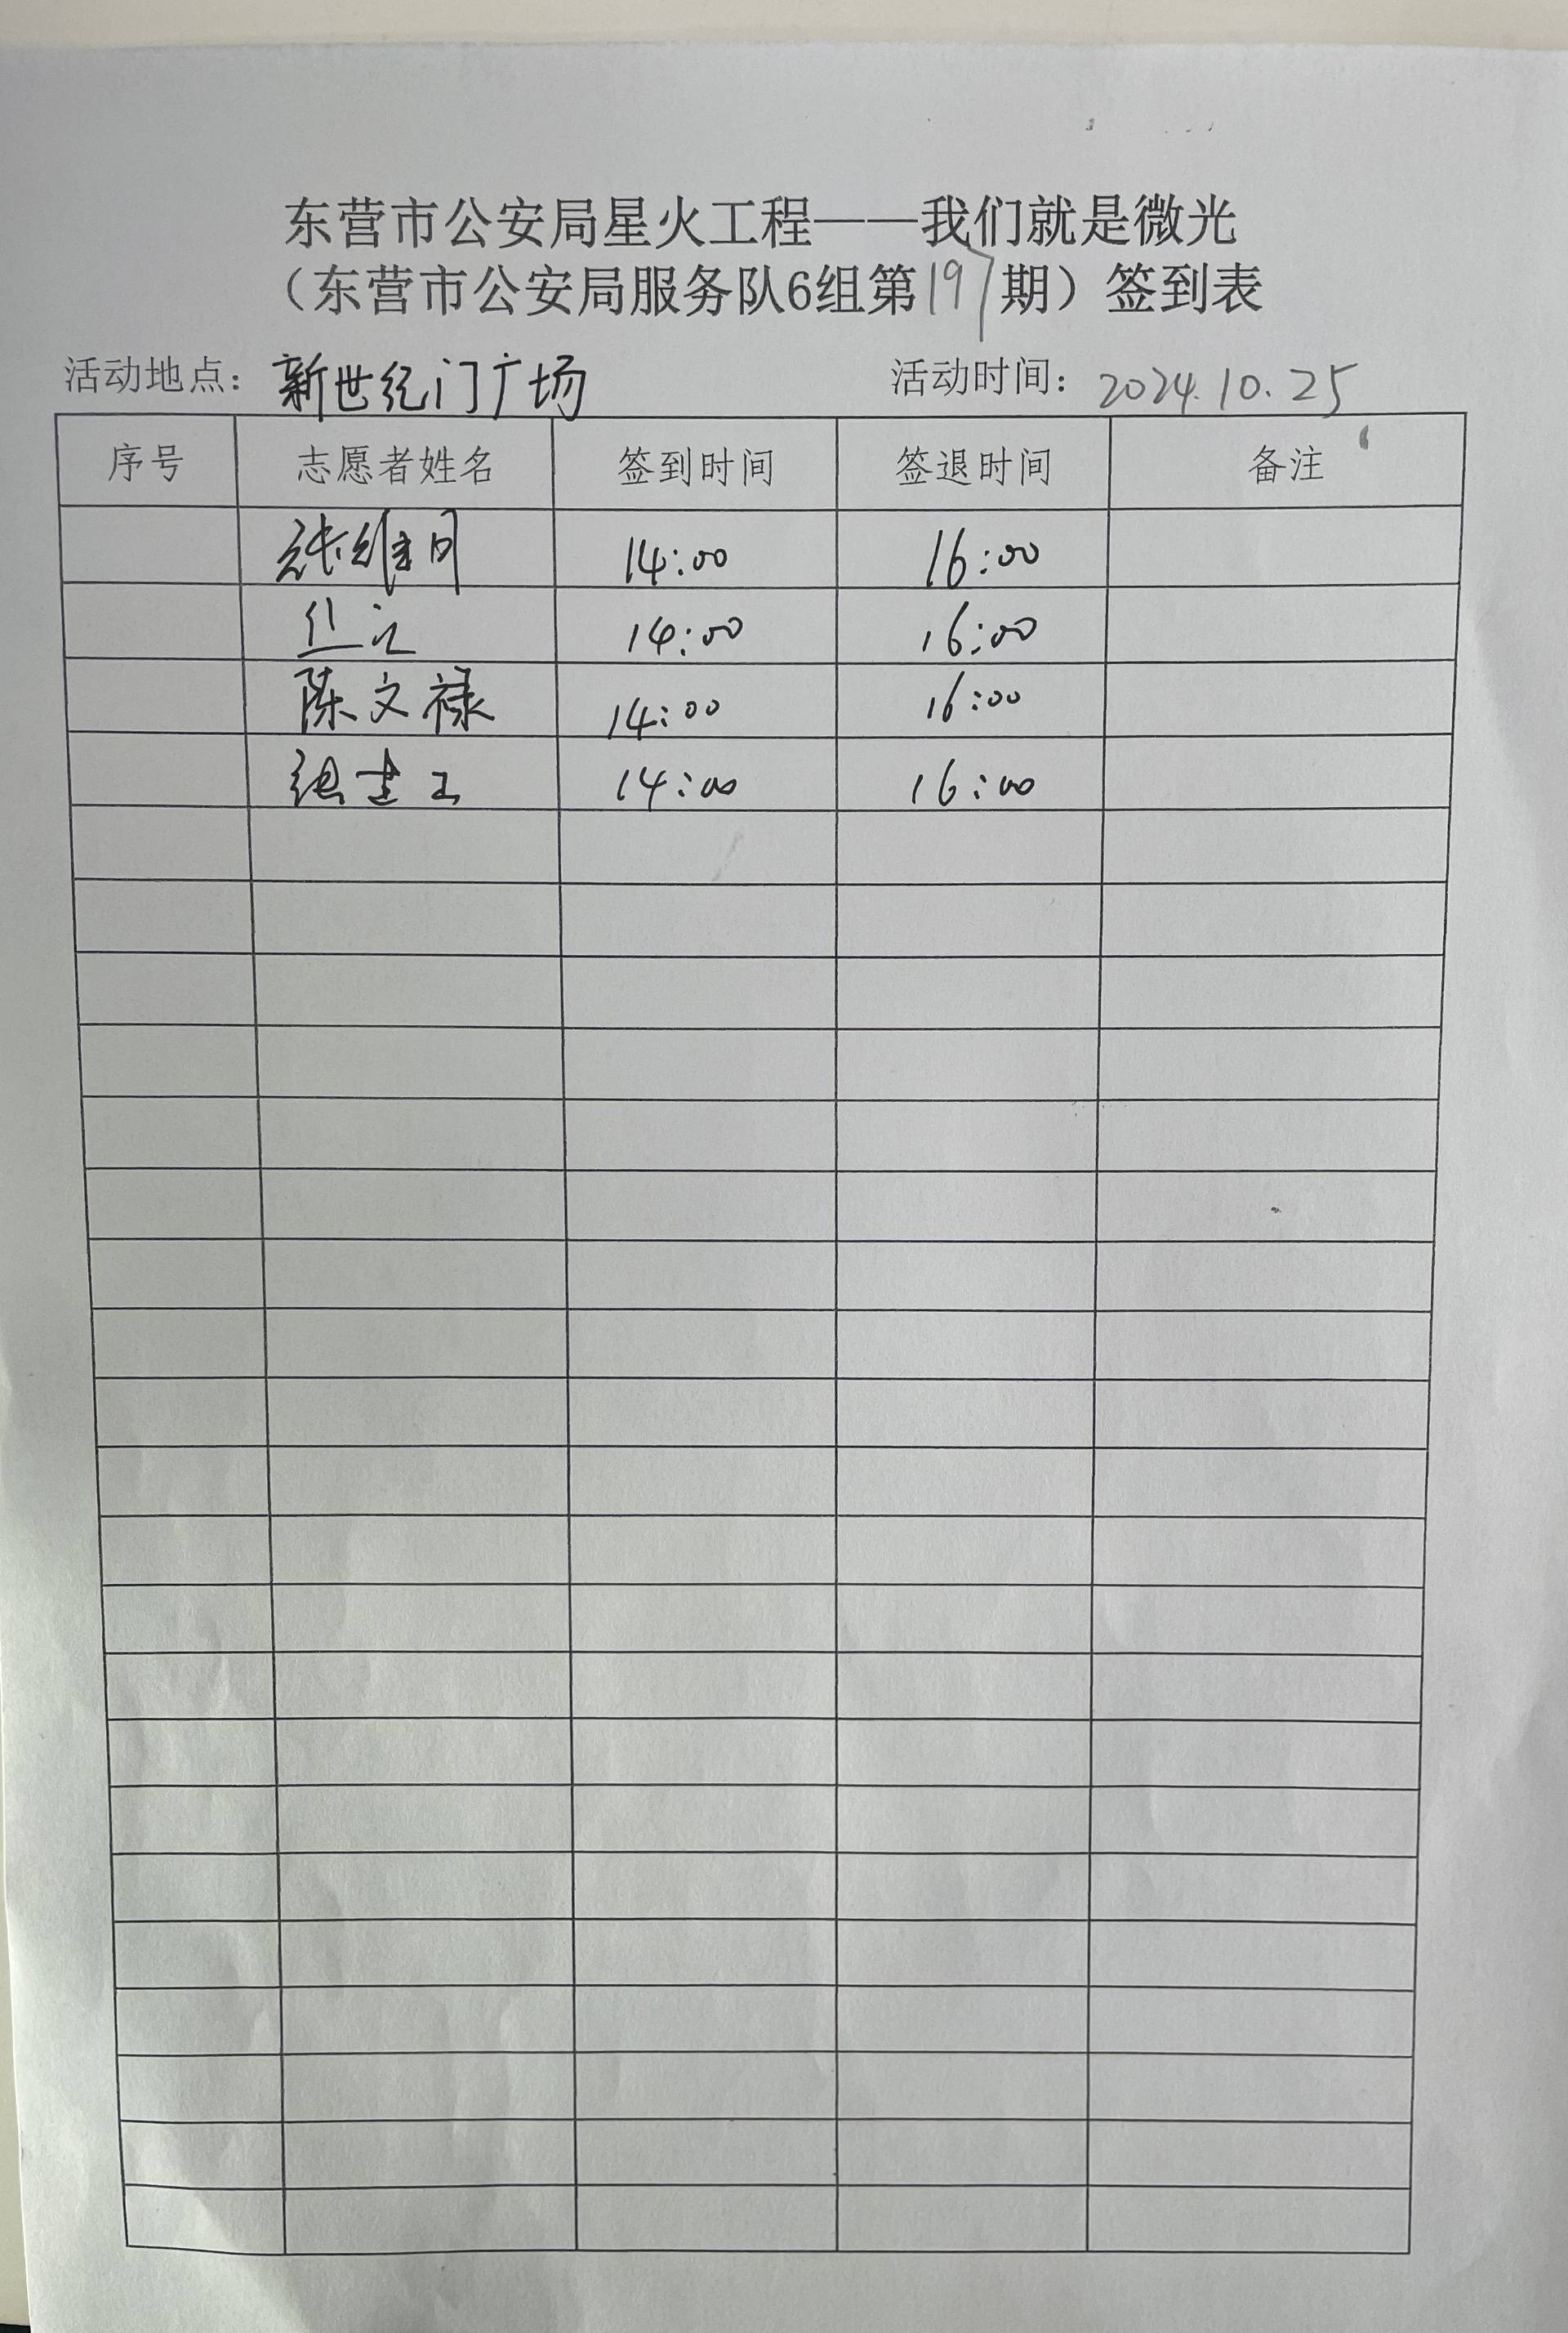 东营市公安局星火工程——我们就是微光
（东营市公安局服务队6组第197期）签到表
活动地点：新世纪门广场 活动时间：2024.10.25
序号 志愿者姓名 签到时间 签退时间 备注
14:00 16:00
14:00 16:00
陈文禄 14:00 16:00
14:00 16:00